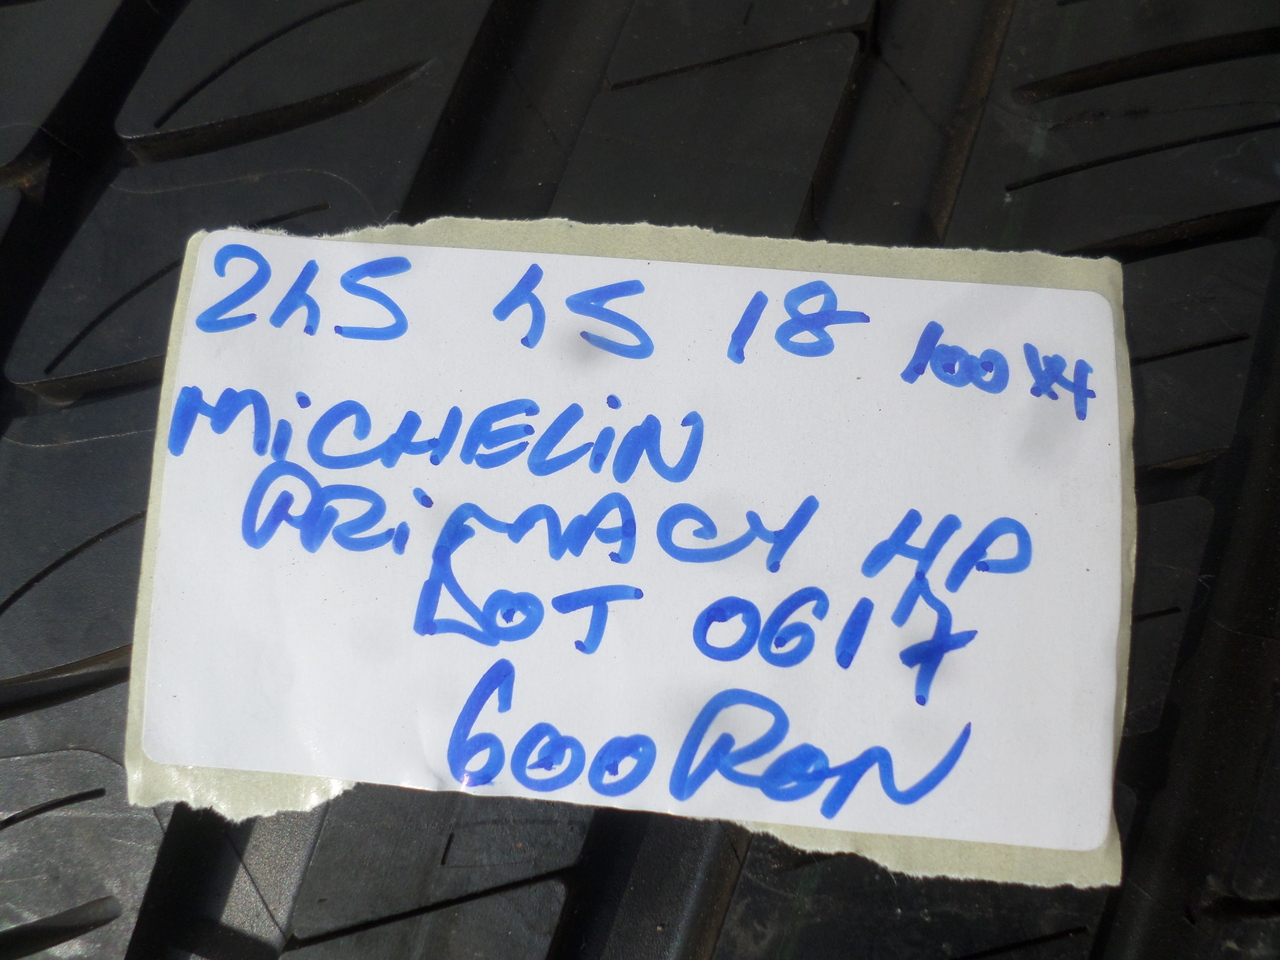 245 45 18 100
MiCHELiN
PRiMACY HP
DOT 0617
600 RON